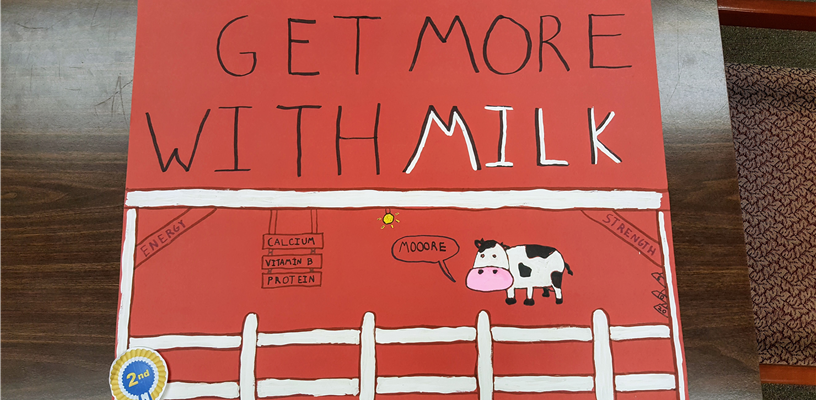 GET MORE
WITH MILK
ENERGY
CALCIUM
VITAMIN B
PROTEIN
MOOORE
STRENGTH
2nd